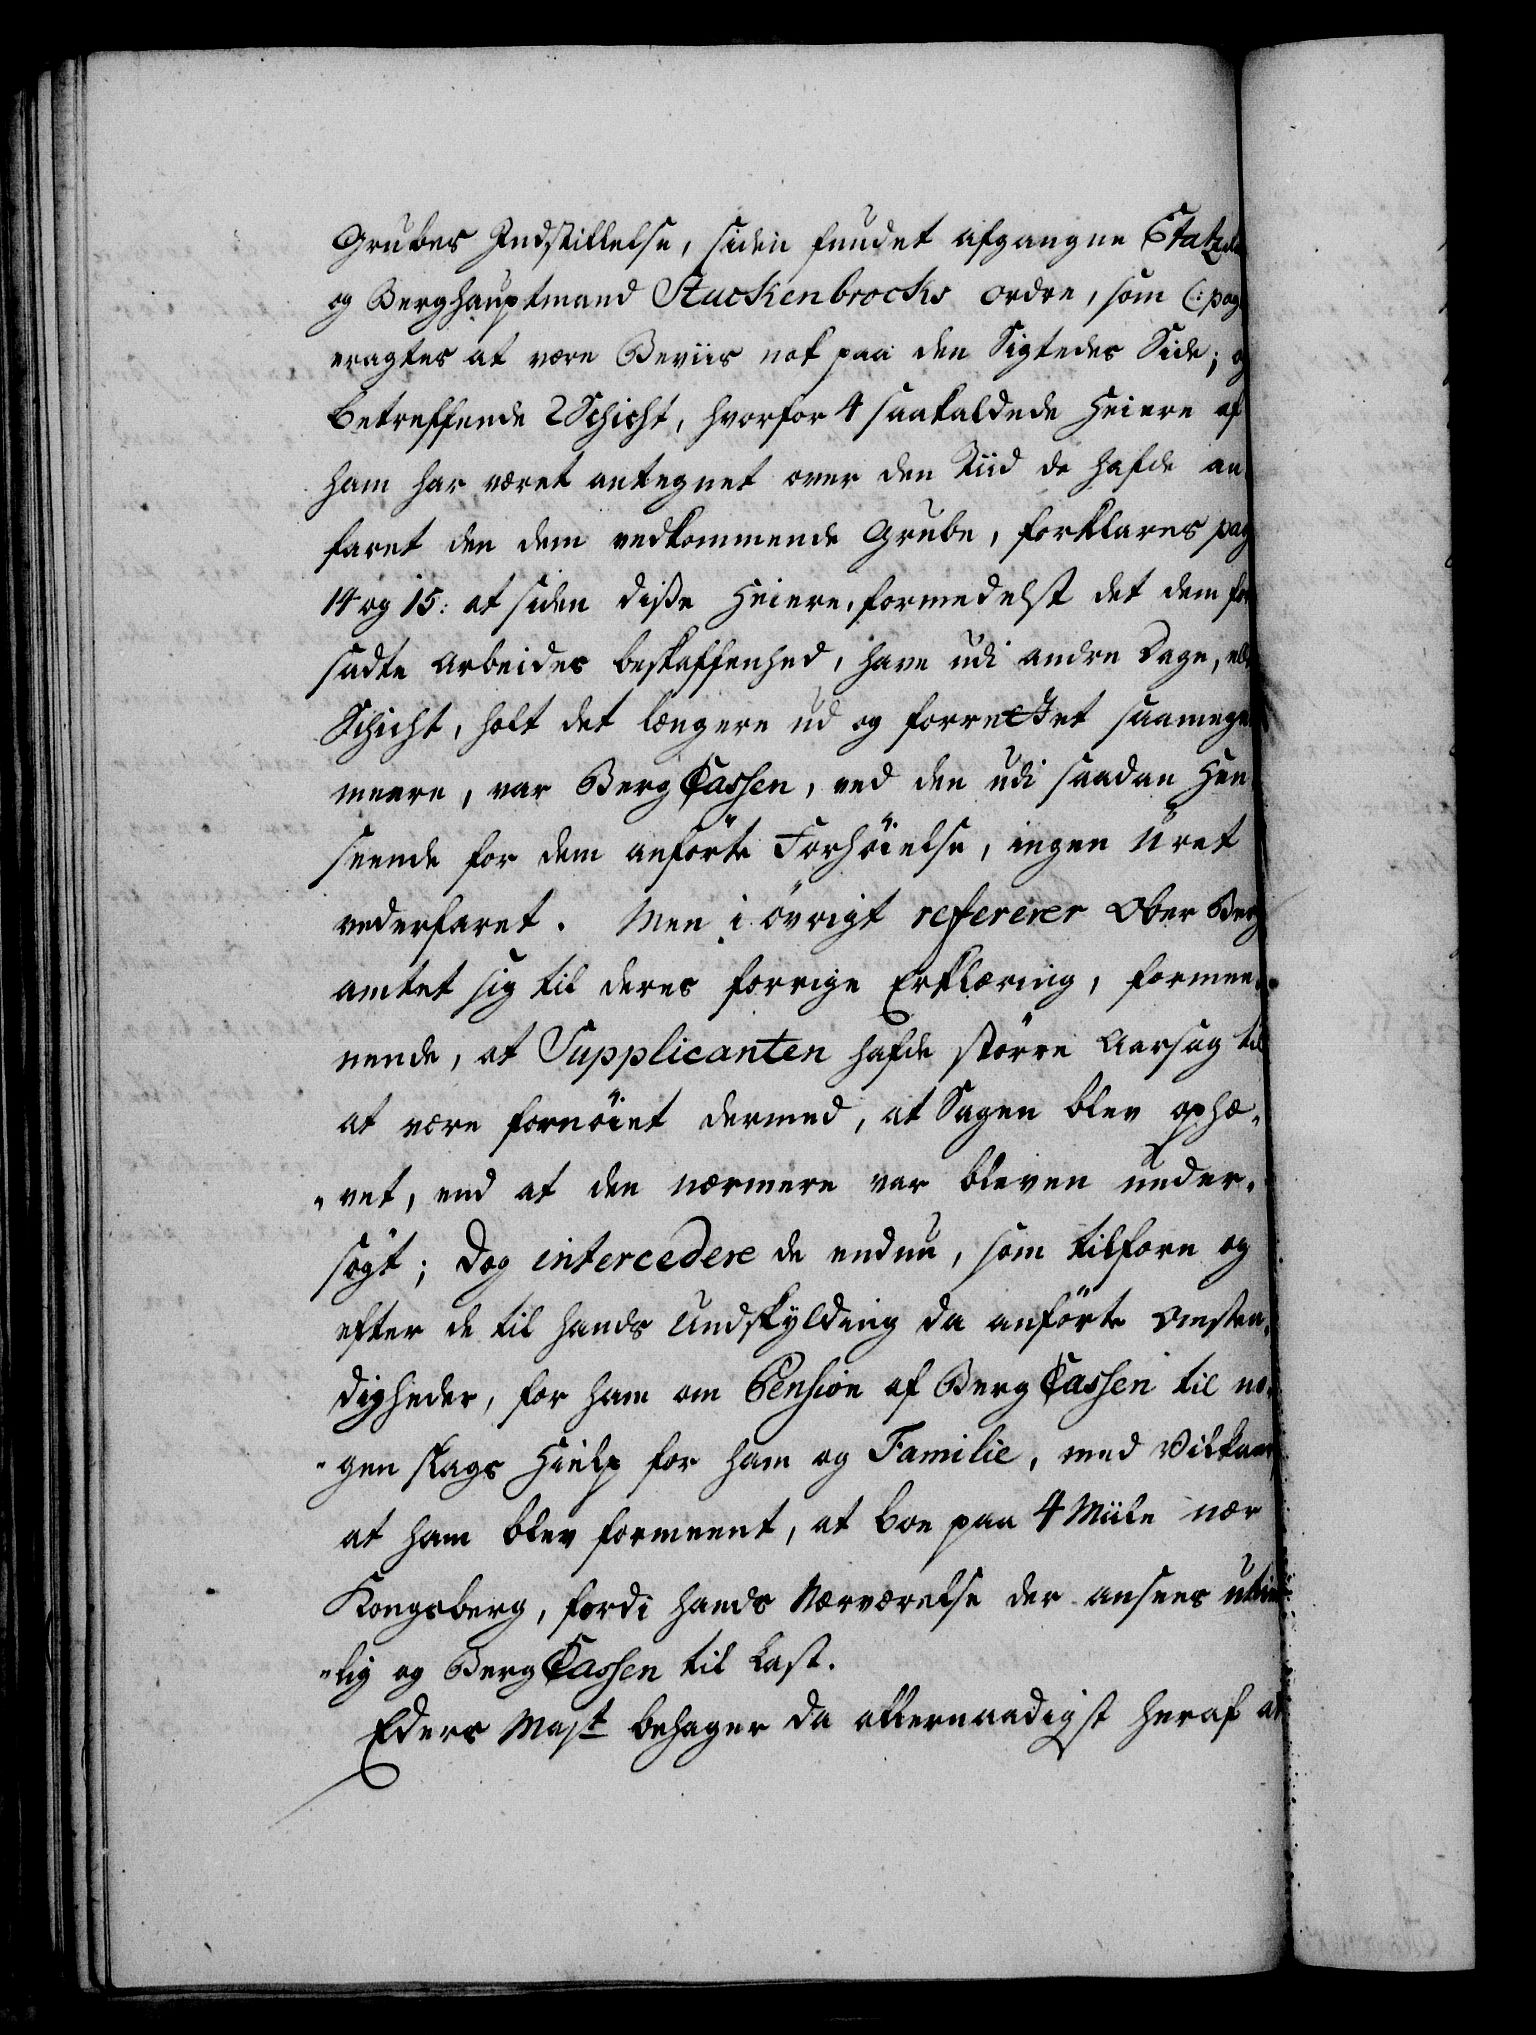 Grubes Indstillelse, siden fundet afgangne Etatz
og Berghauptmand Stuckenbrocks ordre, som (: pag
eragtes at være Beviis nok paa den Sigtedes Side; og
betreffende 2 Schicht, hvorfor 4 saakaldede Heiere af
ham har været antegnet over den Tiid de hafde an
faret den dem vedkommende Grube, forklares pag
14 og 15: at siden disse Heiere, formedelst det dem for
sadte Arbeides beskaffenhed, have udi andre Dage, eller
Schicht, holt det længere ud og forrettet saameget
meere, var Berg Cassen, ved den udi saadan Hen
seende for dem anförte Forhöielse, ingen Uret
vederfaret. Men i övrigt refererer Ober Berg
amtet sig til deres forrige Erklæring, formee-
nende, at Supplicanten hafde större Aarsag til
at være fornöiet dermed, at Sagen blev ophæ-
"vet, end at den nærmere var bleven under-
sögt; Dog intercedere de endnu, som tilforn og
efter de til hands Undskylding da anförte Omsten-
digheder, for ham om Pension af Berg Cassen til no-
"gen slags Hielp for ham og Familie, med Vilkaar
at ham blev formeent, at boe paa 4 Miile nær
Kongsberg, fordi hands Nærværelse der ansees utien
"lig og Berg Cassen til Last.
Eders Mayst behager da allernaadigst heraf at